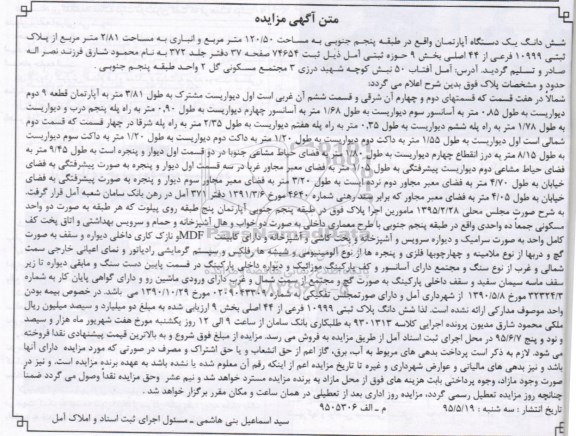 متن آگهی مزایده
شش دانگ یک دستگاه آپارتمان واقع در طبقه پنجم جنوبی به مساحت ۱۲۰/۵۰ متر مربع و انباری به مساحت ۲/۸۱ متر مربع از پلاک
ثبتی ۱۰۹۹۹ فرعی از ۴۴ اصلی بخش ۹ حوزه ثبتی آمل ذیل ثبت ۷۴۶۵۴ صفحه ۳۷ دفتر جلد ۳۷۲ به نام محمود شارق فرزند نصر اله
صادر و تسلیم گردید. آدرس: آمل آفتاب ۵۰ نبش کوچه شهید درزی ۳ مجتمع مسکونی گل ۲ واحد طبقه پنجم جنوبی.
حدود و مشخصات پلاک فوق بدین شرح اعلام می گردد:
شمالاً در هفت قسمت که قسمتهای دوم و چهارم آن شرقی و قسمت ششم آن غربی است اول دیواریست مشترک به طول ۳/۸۱ متر به آپارتمان قطعه ۹ دوم
دیواریست به طول ۰/۸۵ متر به آسانسور سوم دیواریست به طول ۱/۶۸ متر به آسانسور چهارم دیواریست به طول ۰/۹۰ متر به راه پله پنجم درب و دیواریست
به طول ۱/۷۸ متر به راه پله ششم دیواریست به طول ۰/۳۵ متر به راه پله هفتم دیواریست به طول ۲/۳۵ متر به راه پله شرقا در چهار قسمت که قسمت دوم
شمالی است اول دیواریست به طول ۱/۵۵ متر به داکت دوم دیواریست به طول ۱/۲۰ متر به داکت دوم دیواریست به طول ۱/۲۰ متر به داکت سوم دیواریست
به طول ۸/۱۵ متر به درز انقطاع چهارم دیواریست به طول ۱/۸۰ متر به فضای حیاط مشاعی جنوبا در دو قسمت اول دیوار و پنجره است به طول ۹/۴۵ متر به
فضای حیاط مشاعی دوم دیواریست پیشرفتگی به طول متر به فضای معبر مجاور غربا در سه قسمت اول دیوار و پنجره به صورت پیشرفتگی به فضای
خیابان به طول ۴/۷۰ متر به فضای معبر مجاور دوم نرده است به طول ۳/۲۰ متر به فضای معبر مجاور سوم دیوار و پنجره به صورت پیشرفتگی به فضای
خیابان به طول ۴/۰۵ متر به فضای معبر مجاور که برابر سند رهنی شماره ۴۶۴۰ مورخ ۱۳۹۱/۳/۶ دفتر ۳۷۱ آمل در رهن بانک سامان شعبه آمل قرار گرفت.
به شرح صورت مجلس محلی ۱۳۹۵/۲/۲۸ مامورین اجرا پلاک فوق در طبقه پنجم جنوبی آپارتمان پنج طبقه روی پیلوت که هر طبقه به صورت دو واحد
مسکونی جمعاً ده واحدی واقع در طبقه پنجم جنوبی با طرح معماری داخلی به صورت دو خواب و هال آشپزخانه و حمام و سرویس بهداشتی و اتاق پخت کف
کامل واحد به صورت سرامیک و دیواره سرویس و آشپزخانه و پخت کاشی و آشپزخانه و دارای کابینت MDF و نازک کاری داخلی دیواره و سقف به صورت
گچ و دربها از نوع ملامینه و چهارچوبها فلزی و پنجره ها از نوع آلومینیومی و شیشه ها رفلکس و سیستم گرمایشی رادیاتور و نمای اعیانی خارجی سمت
شمالی و غرب از نوع سنگ و مجتمع دارای آسانسور و کف پارکینگ موزائیک و دیواره داخلی پارکینگ در قسمت پایین دست سنگ و مابقی دیواره تا زیر
سقف ماسه سیمان سفید و سقف داخلی پارکینگ به صورت گچ و مجتمع از سمت شمال و غرب دارای ورودی ماشین رو و دارای گواهی پایان کار به شماره
۳۲۳۲۴/۳ مورخ ۱۳۹۰/۵/۸ از شهرداری آمل و دارای صورتمجلس تفکیکی به شماره مورخ ۱۳۹۰/۱۰/۲۹ می باشد. در خصوص بیمه بودن
واحد موصوف مدارکی ارائه نشده است. لذا شش دانگ پلاک ثبتی ۱۰۹۹۹ فرعی از ۴۴ اصلی بخش ۹ ارزیابی شده به مبلغ دو میلیارد و سیصد میلیون ریال
ملکی محمود شارق مدیون پرونده اجرایی کلاسه ۹۳۰۱۳۱۳ به طلبکاری بانک سامان از ساعت ۹ الی ۱۲ روز یکشنبه مورخ هفت شهریور ماه هزار و سیصد
و نود و پنج ۹۵/۶/۷ در محل اجرای ثبت اسناد آمل از طریق مزایده به فروش می رسد. مزایده از مبلغ فوق شروع و به بالاترین قیمت پیشنهادی نقدا فروخته
می شود. لازم به ذکر است پرداخت بدهی های مربوط به آب، برق، گاز اعم از حق انشعاب و یا حق اشتراک و مصرف در صورتی که مورد مزایده دارای آنها
باشد و نیز بدهی های مالیاتی و عوارض شهرداری و غیره تا تاریخ مزایده اعم از اینکه رقم آن معلوم شده یا نشده باشد به عهده برنده مزایده است. و نیز در
صورت وجود مازاد، وجوه پرداختی بابت هزینه های فوق از محل مازاد به برنده مزایده مسترد خواهد شد و نیم عشر و حق مزایده نقداً وصول می گردد ضمناً
چنانچه روز مزایده تعطیل رسمی گردد، مزایده روز اداری بعد از تعطیلی در همان ساعت و مکان مقرر برگزار خواهد شد.
تاریخ انتشار: سه شنبه: ۹۵/۵/۱۹ م - الف ۹۵۰۵۳۰۶
سید اسماعیل بنی هاشمی - مسئول اجرای ثبت اسناد و املاک آمل